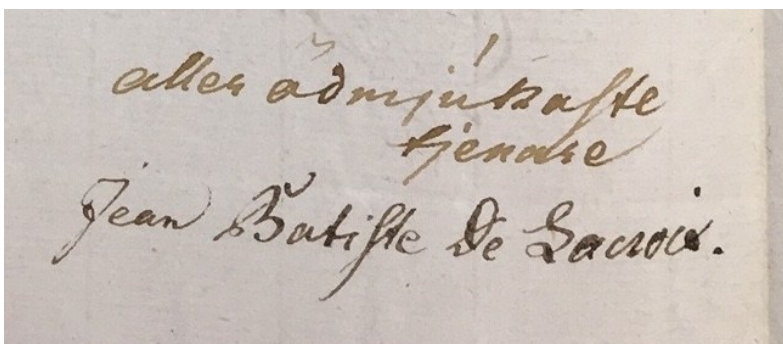 aller ödmjúkaste
tjenare
Jean Batiste De Lacroix.